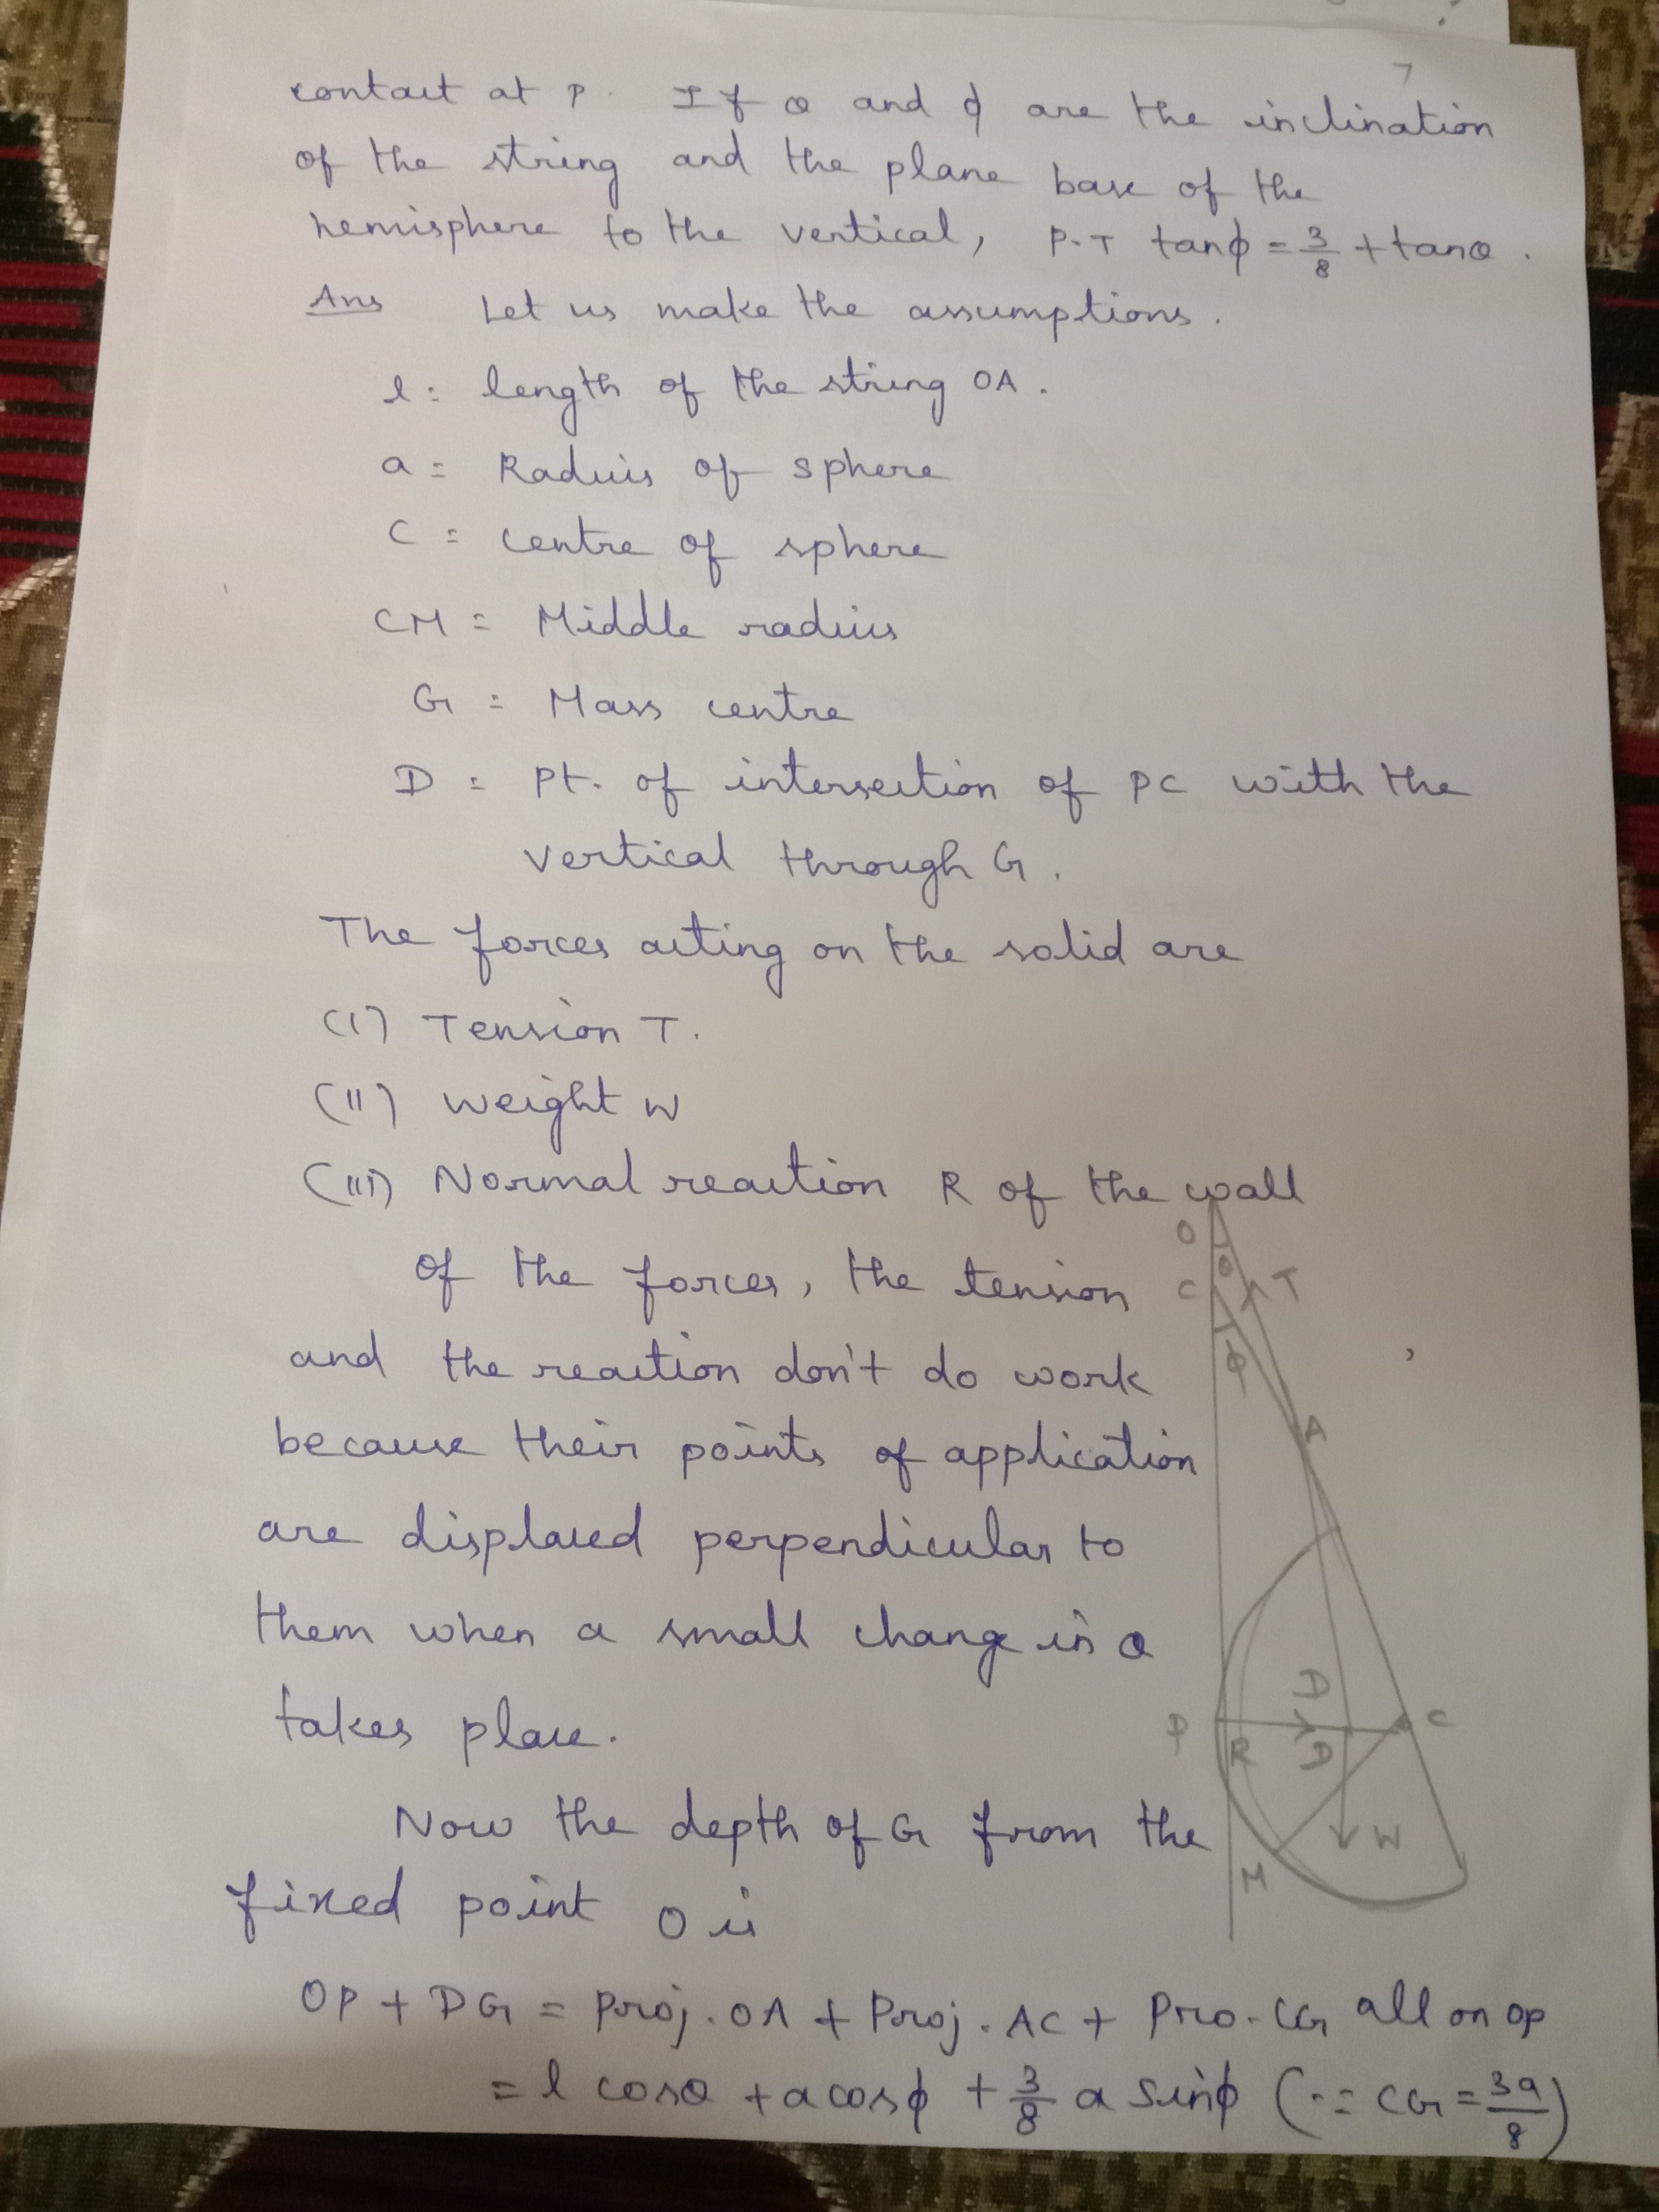 7
contact at P. If θ and φ are the inclination
of the string and the plane base of the
hemisphere to the vertical, P.T tanφ = 3/8 + tanθ.
Ans Let us make the assumptions.
l: length of the string OA.
a = Radius of sphere
C = centre of sphere
CM = Middle radius
G = Mass centre
D = Pt. of intersection of PC with the
vertical through G.
The forces acting on the solid are
(I) Tension T.
(II) Weight W
(III) Normal reaction R of the wall
of the forces, the tension
and the reaction don't do work
because their points of application
are displaced perpendicular to
them when a small change in θ
takes place.
Now the depth of G from the
fixed point O is
OP + DG = Proj. OA + Proj. AC + Pro. CG all on OP
= l cosθ + a cosφ + 3/8 a sinφ (∵ CG = 3a/8)
O
θ
C
T
φ
A
D
P
C
R
D
W
M